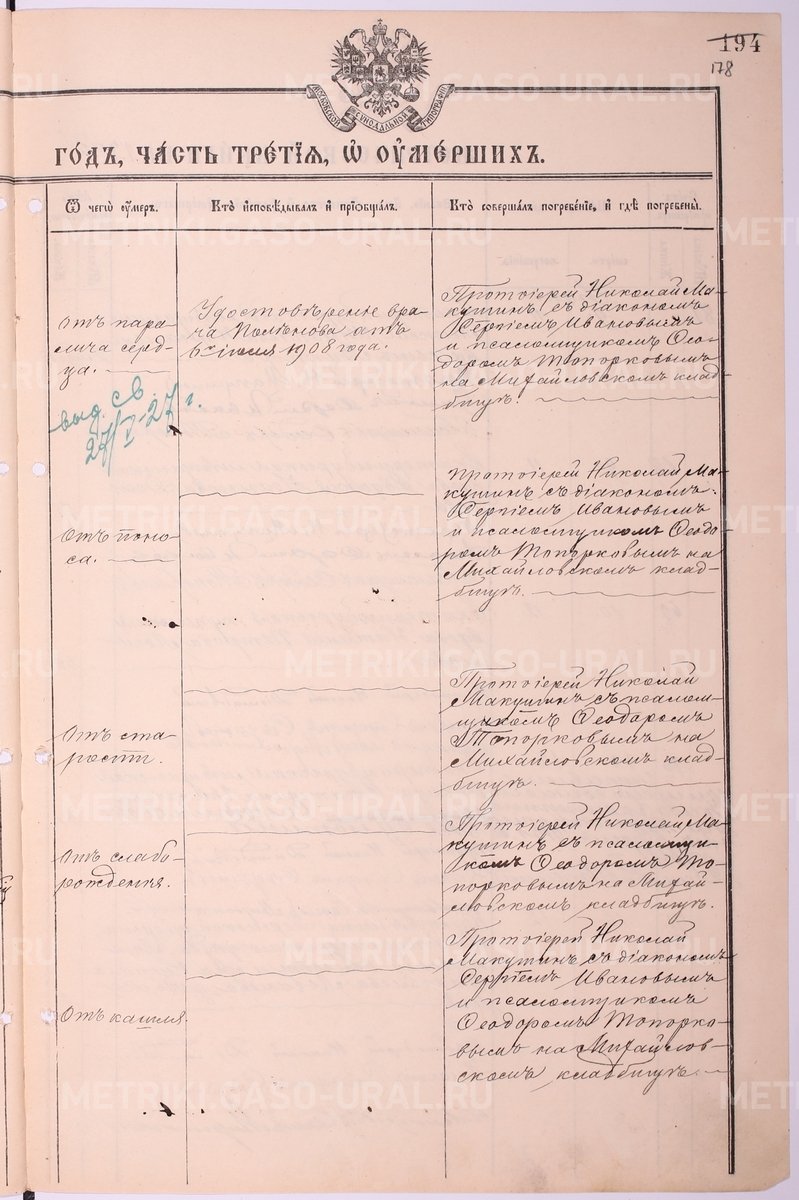 194
178
МОСКОВСКОЙ СИНОДАЛЬНОЙ ТИПОГРАФІИ
ГО́ДЪ, ЧА́СТЬ ТРЕ́ТІЯ, Ѡ ОУ҆МЕ́РШИХЪ.
Ѿ чегѡ̀ ᲂу҆́меръ.
Кто̀ и҆сповѣ́дывалъ и҆ прїѡбща́лъ.
Кто̀ соверша́лъ погребе́нїе, и҆ гдѣ̀ погребены̀.
Отъ пара-
лича серд-
ца.
Удостовѣреніе вра-
ча
6го іюля 1908 года.
Протоіерей Николай Ма-
кушинъ съ діакономъ
Сергіемъ Ивановымъ
и псаломщикомъ Ѳео-
доромъ Топорковымъ
на Михайловскомъ клад-
бищѣ.
выд. св.
27/V-27 г.
Отъ поно-
са.
Протоіерей Николай Ма-
кушинъ съ діакономъ
Сергіемъ Ивановымъ
и псаломщикомъ Ѳеодо-
ромъ Топорковымъ на
Михайловскомъ клад-
бищѣ.
Отъ ста-
рости.
Протоіерей Николай
Макушинъ съ псалом-
щикомъ Ѳеодоромъ
Топорковымъ на
Михайловскомъ клад-
бищѣ.
Отъ слабо-
рожденія.
Протоіерей Николай Ма-
кушинъ съ псаломщи-
комъ Ѳеодоромъ То-
порковымъ на Михай-
ловскомъ кладбищѣ.
Отъ кашля.
Протоіерей Николай
Макушинъ съ діакономъ
Сергіемъ Ивановымъ
и псаломщикомъ
Ѳеодоромъ Топорко-
вымъ на Михайлов-
скомъ кладбищѣ.
METRIKI.GASO-URAL.RU